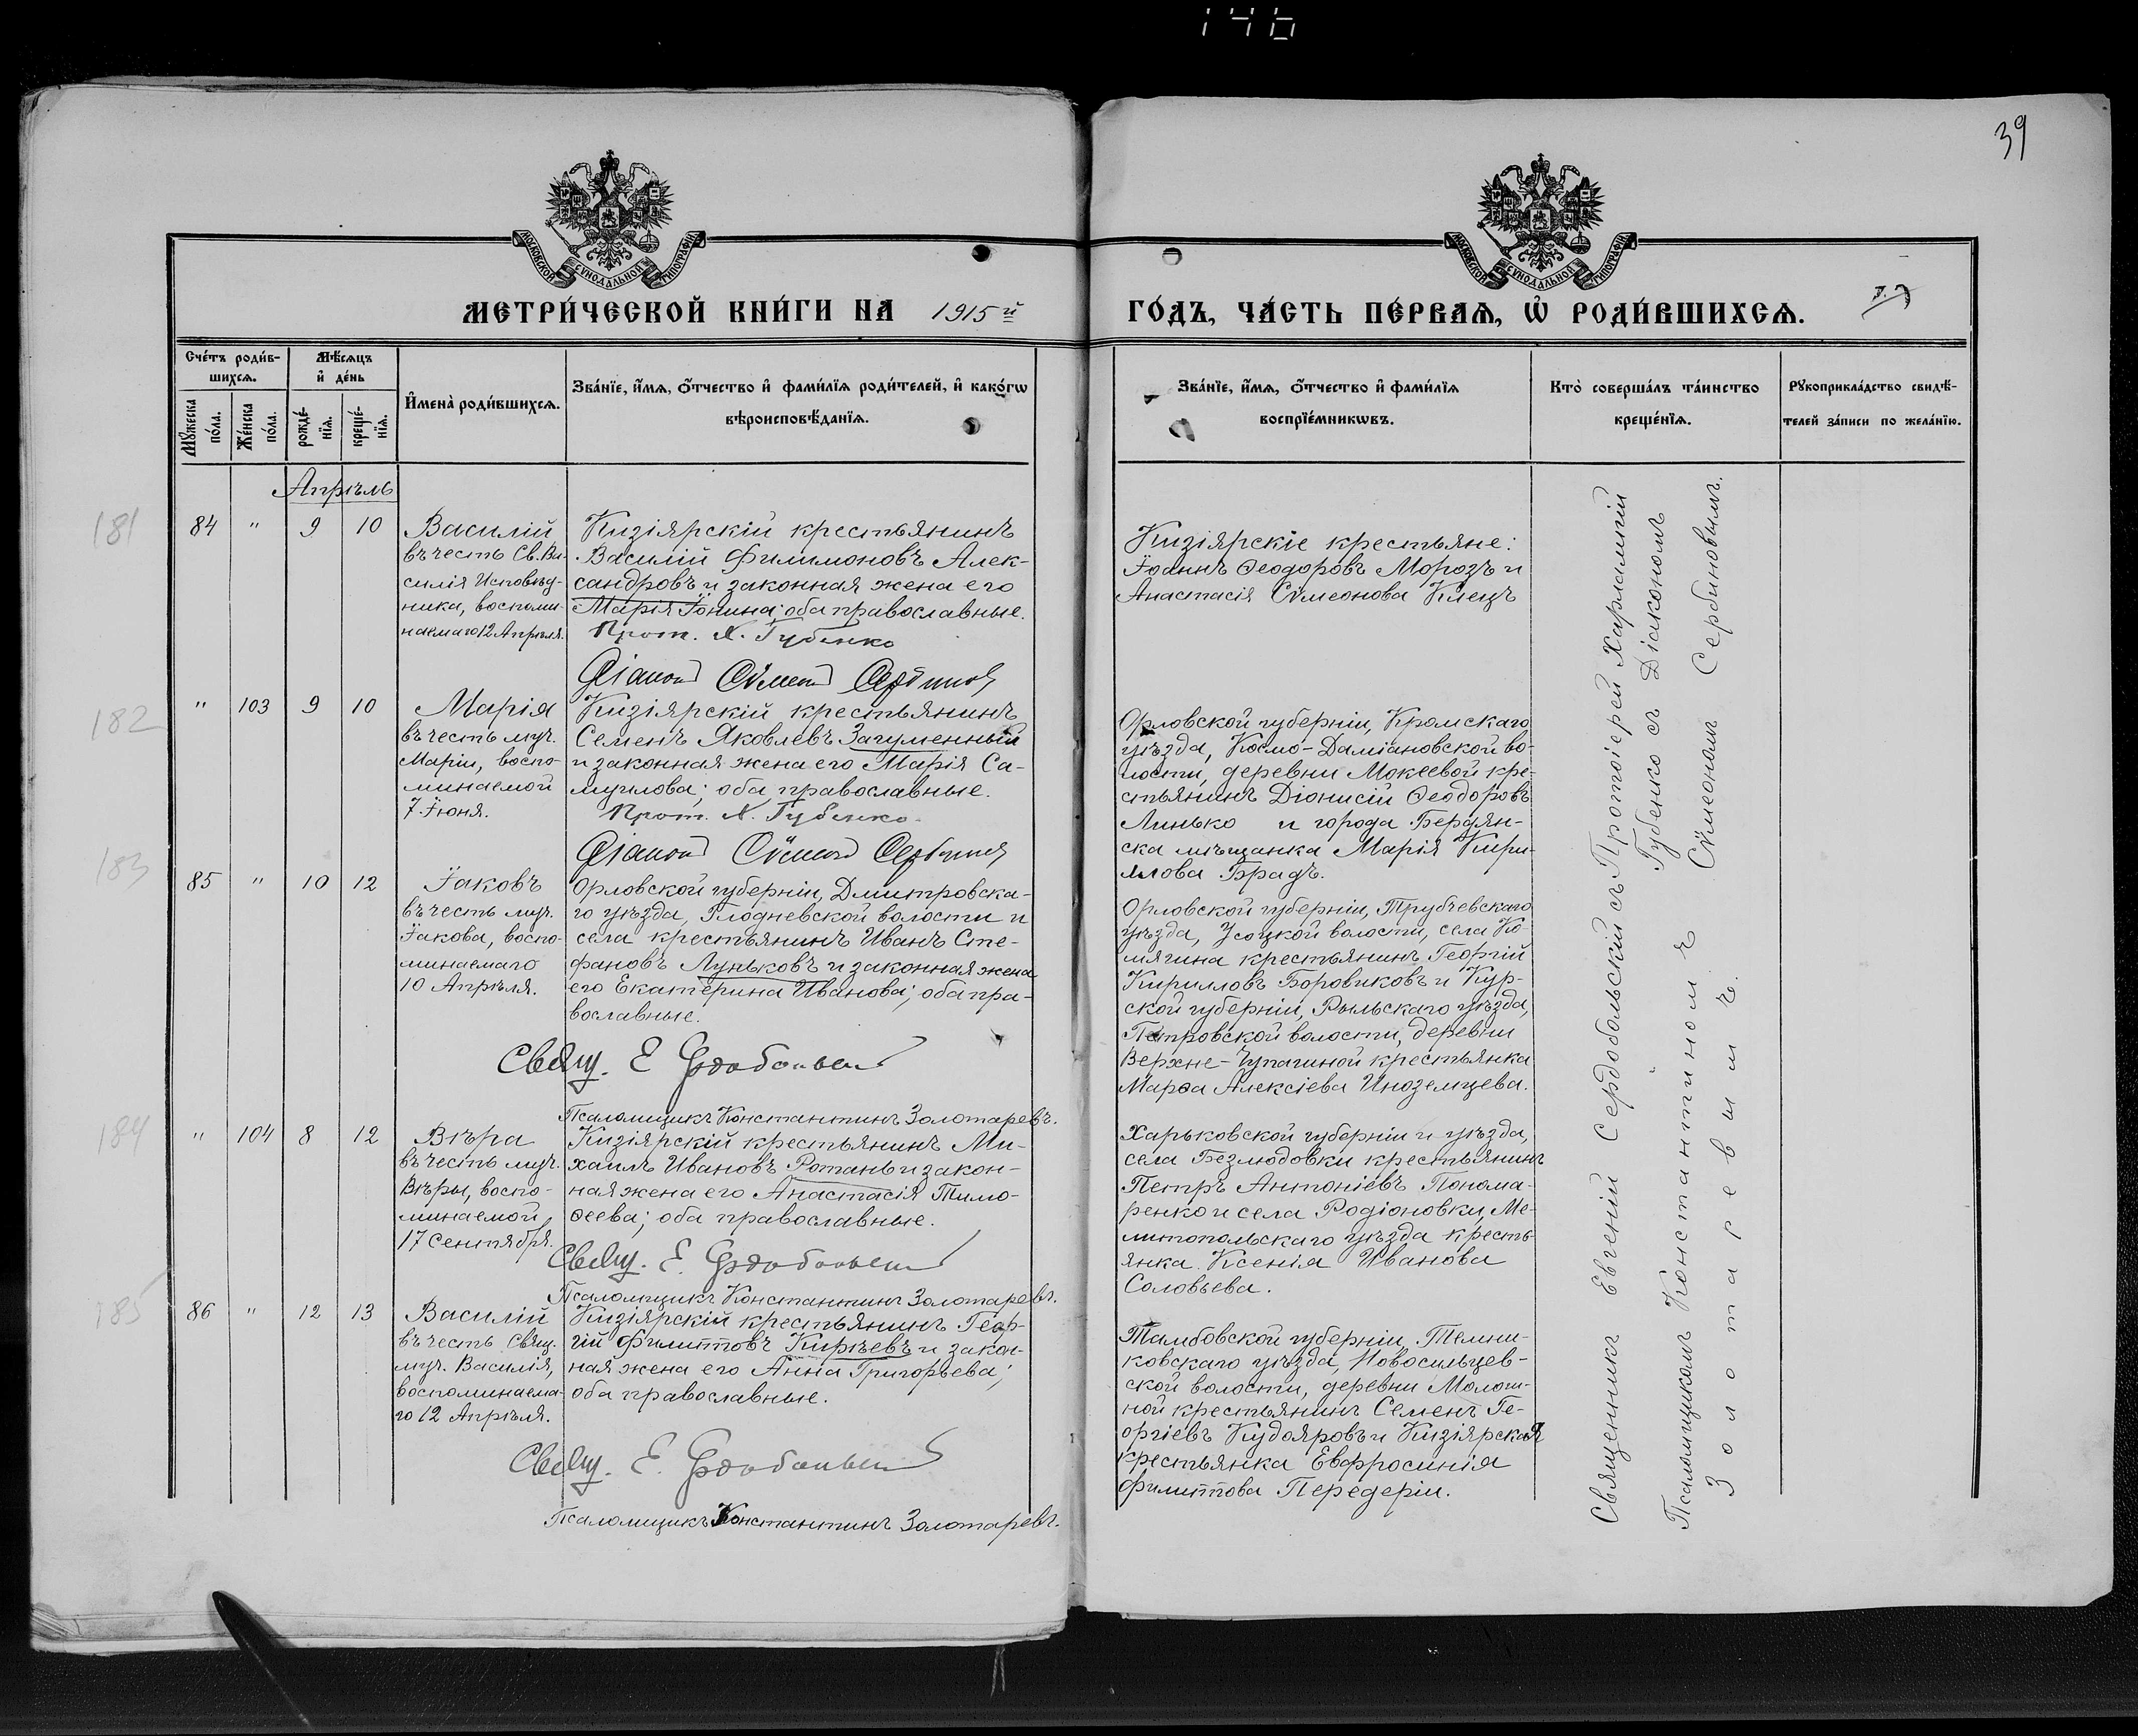 146
39
МОСКОВСКОЙ СѴНОДАЛЬНОЙ ТИПОГРАФІИ
МОСКОВСКОЙ СѴНОДАЛЬНОЙ ТИПОГРАФІИ
МЕТРИ́ЧЕСКОЙ КНИ́ГИ НА 1915й
ГО́ДЪ, ЧА́СТЬ ПЕ́РВАѦ, Ѡ҆ РОДИ́ВШИХСѦ.
Сче́тъ роди́в-
шихсѧ.
Мѣ́сѧцъ
и҆ де́нь
Мꙋ́жеска
по́ла.
Же́нска
по́ла.
рожде́-
нїѧ.
креще́-
нїѧ.
И҆мена̀ роди́вшихсѧ.
Зва́нїе, и҆́мѧ, ѻ҆́тчество и҆ фами́лїѧ роди́телей, и҆ како́гѡ
вѣроисповѣ́данїѧ.
Зва́нїе, и҆́мѧ, ѻ҆́тчество и҆ фами́лїѧ
воспрїе́мникѡвъ.
Кто̀ соверша́лъ та́инство
креще́нїѧ.
Рꙋкоприкла́дство свидѣ́-
телей за́писи по жела́нїю.
Апрѣль
181
84 " 9 10
Василій
въ честь Св. Ва-
силія Исповѣд-
ника, воспоми-
наемаго 12 Апрѣля.
Кизіярскій крестьянинъ
Василій Филимоновъ Алек-
сандровъ и законная жена его
Марія Іонина; оба православные.
Прот. Х. Губенко
Діаконъ Сѵмеонъ Сербиновъ
Кизіярскіе крестьяне:
Іоаннъ Ѳеодоровъ Морозъ и
Анастасія Сѵмеонова Клецъ
182
" 103 9 10
Марія
въ честь муч.
Маріи, воспо-
минаемой
7 Іюня.
Кизіярскій крестьянинъ
Семенъ Яковлевъ Загуменный
и законная жена его Марія Са-
муилова; оба православные.
Прот. Х. Губенко.
Діаконъ Сѵмеонъ Сербиновъ
Орловской губерніи, Кромскаго
уѣзда, Космо-Даміановской во-
лости, деревни Мокеевой кре-
стьянинъ Діонисій Ѳеодоровъ
Линько и города Бердян-
ска мѣщанка Марія Кири-
ллова Брадъ.
183
85 " 10 12
Іаковъ
въ честь муч.
Іакова, воспо-
минаемаго
10 Апрѣля.
Орловской губерніи, Дмитровска-
го уѣзда, Глодневской волости и
села крестьянинъ Иванъ Сте-
фановъ Луньковъ и законная жена
его Екатерина Иванова; оба пра-
вославные.
Свящ. Е. Сердобольскій
Псаломщикъ Константинъ Золотаревъ.
Орловской губерніи, Трубчевскаго
уѣзда, Усоцкой волости, села Ко-
мягина крестьянинъ Георгій
Кирилловъ Боровиковъ и Кур-
ской губерніи, Рыльскаго уѣзда,
Петровской волости, деревни
Верхне-Чупагиной крестьянка
Марѳа Алексіева Иноземцева.
184
" 104 8 12
Вѣра
въ честь муч.
Вѣры, воспо-
минаемой
17 Сентября.
Кизіярскій крестьянинъ Ми-
хаилъ Ивановъ Ротань и закон-
ная жена его Анастасія Тимо-
ѳеева; оба православные.
Свящ. Е. Сердобольскій
Псаломщикъ Константинъ Золотаревъ.
Харьковской губерніи и уѣзда,
села Безлюдовки крестьянинъ
Петръ Антоніевъ Понома-
ренко и села Родіоновки, Ме-
литопольскаго уѣзда кресть-
янка Ксенія Иванова
Соловьева.
185
86 " 12 13
Василій
въ честь Свящ.
муч. Василія,
воспоминаема-
го 12 Апрѣля.
Кизіярскій крестьянинъ Геор-
гій Филипповъ Кирѣевъ и закон-
ная жена его Анна Григорьева;
оба православные.
Свящ. Е. Сердобольскій
Псаломщикъ Константинъ Золотаревъ.
Тамбовской губерніи, Темни-
ковскаго уѣзда, Новосильцев-
ской волости, деревни
ной крестьянинъ Семенъ Ге-
оргіевъ Кудояровъ и Кизіярская
крестьянка Евфросинія
Филиппова Передерій.
Протоіерей Харлампій
Губенко съ Діакономъ
Сѵмеономъ Сербиновымъ.
Священникъ Евгеній Сердобольскій съ
Псаломщикомъ Константиномъ
Золотаревымъ.